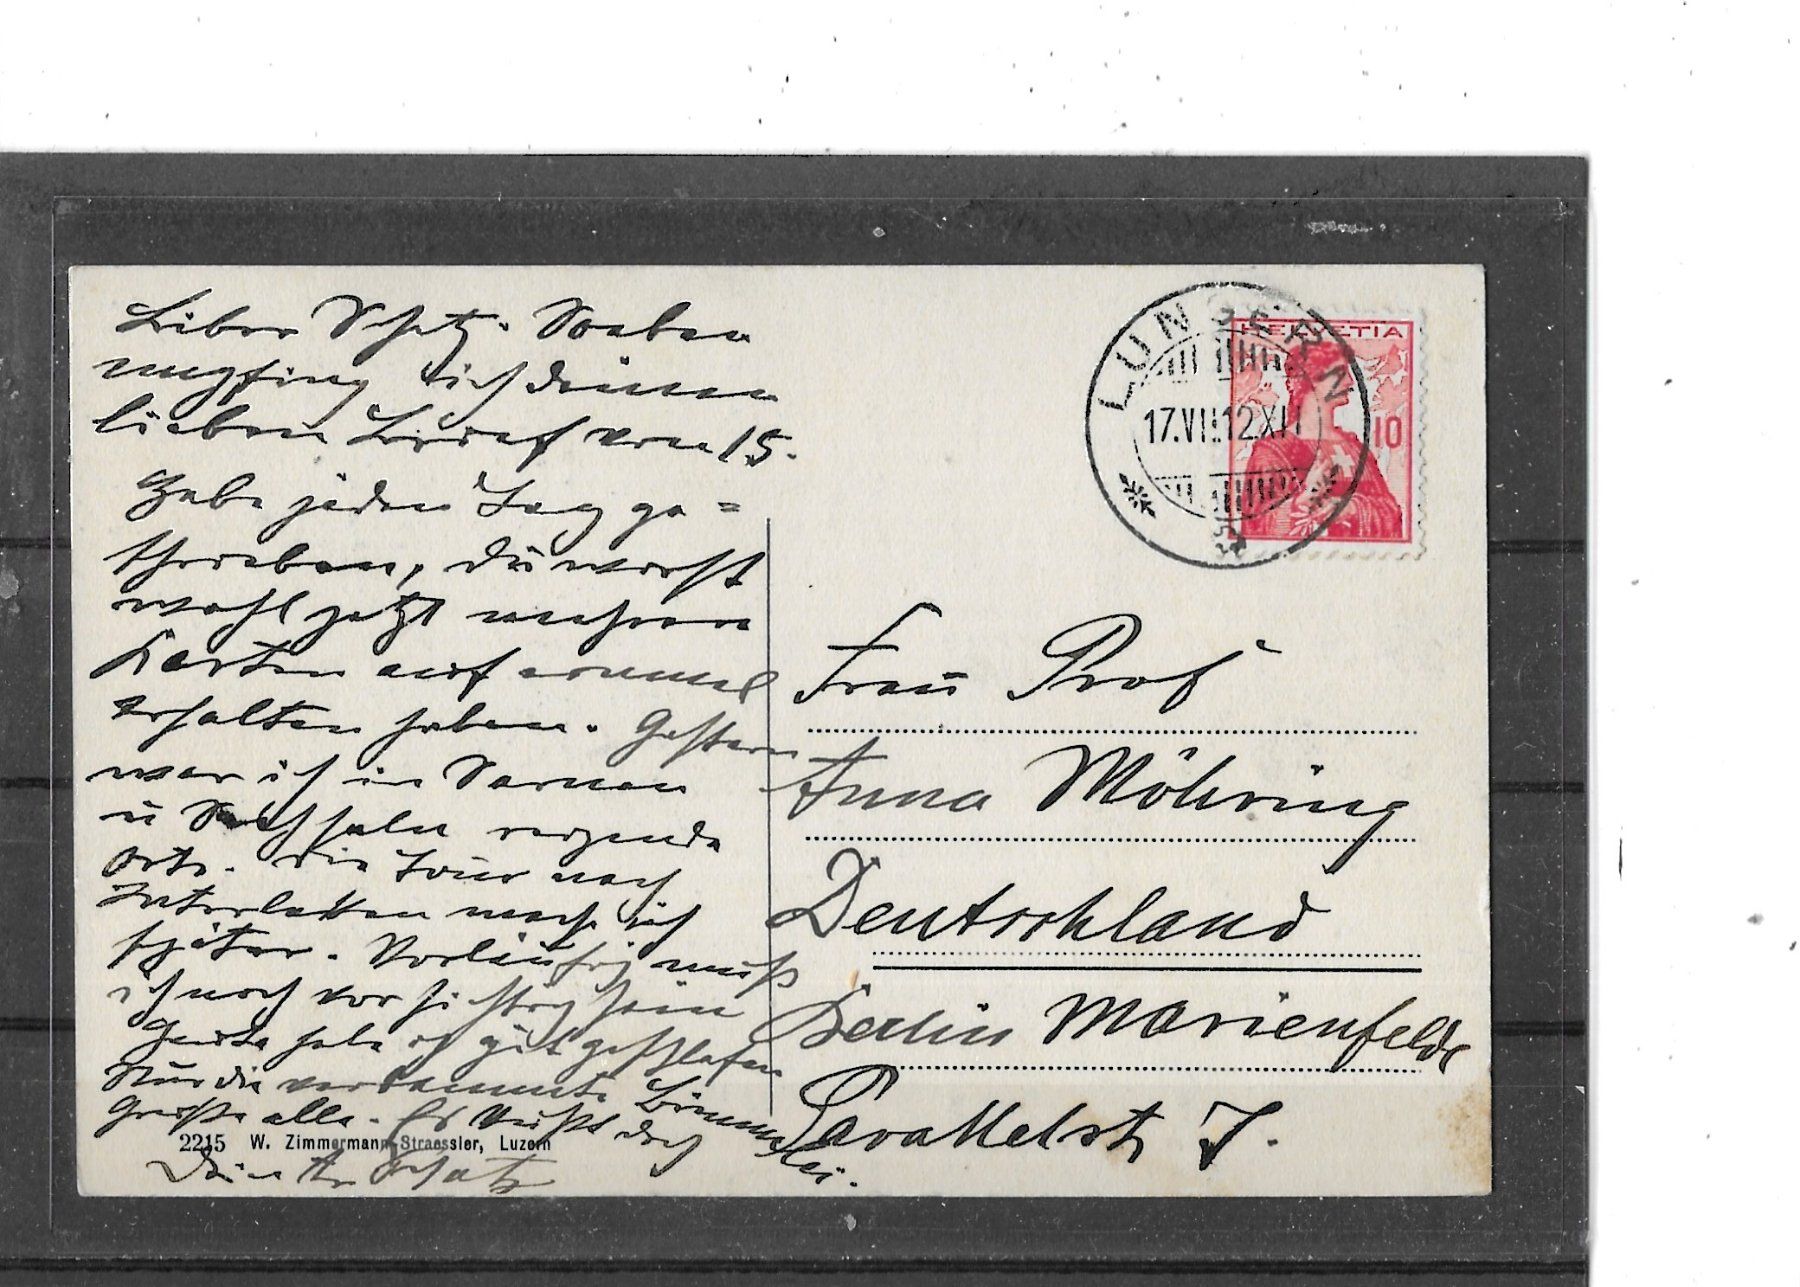 Lieber Schatz. Soeben
empfing ich deinen
lieben Brief vom 15.
Habe jeden Tag ge=
schrieben, du wirst
wohl jetzt mehrere
Karten auf einmal
erhalten haben. Gestern
war ich in Sarnen
u Sachseln reizende
Orte. Die Tour nach
Interlaken mache ich
später. Vorläufig muß
ich noch vorsichtig sein
Heute habe ich gut geschlafen
Nur die verdammte
Grüße alle. Es küßt dich
Dein Schatz
2215 W. Zimmermann-Straessler, Luzern
LUNGERN
17.VII.12.XII
HELVETIA
10
Frau Prof
Anna Möhring
Deutschland
Berlin Marienfelde
Parallelstr 7.